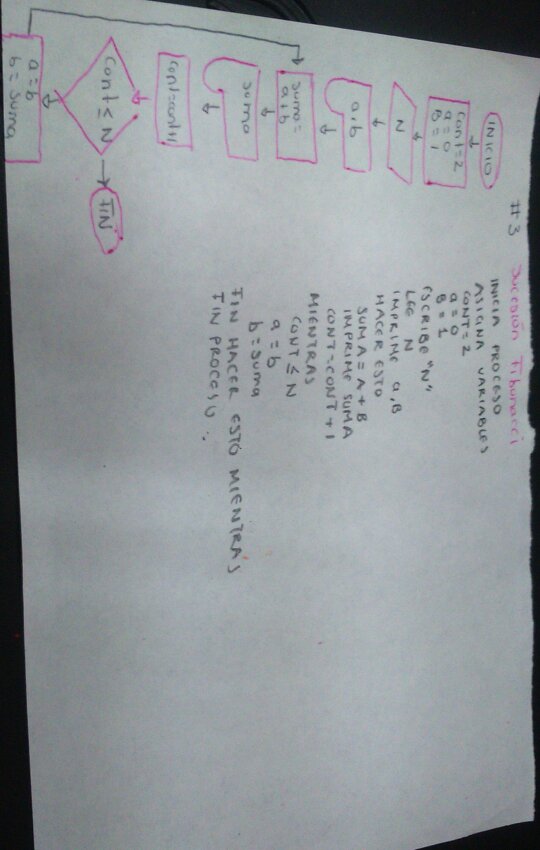 #3 Sucesión Fibonacci
INICIO
Cont=2
a=0
B=1
N
a,b
suma=
a+b
suma
cont=cont+1
Cont ≤ N
FIN
a=b
b=suma
INICIA PROCESO
ASIGNA VARIABLES
CONT=2
a=0
B=1
ESCRIBE "N"
LEE N
IMPRIME a,B
HACER ESTO
SUMA=A+B
IMPRIME SUMA
CONT=CONT+1
MIENTRAS
CONT ≤ N
a=b
b=suma
FIN HACER ESTO MIENTRAS
FIN PROCESO.